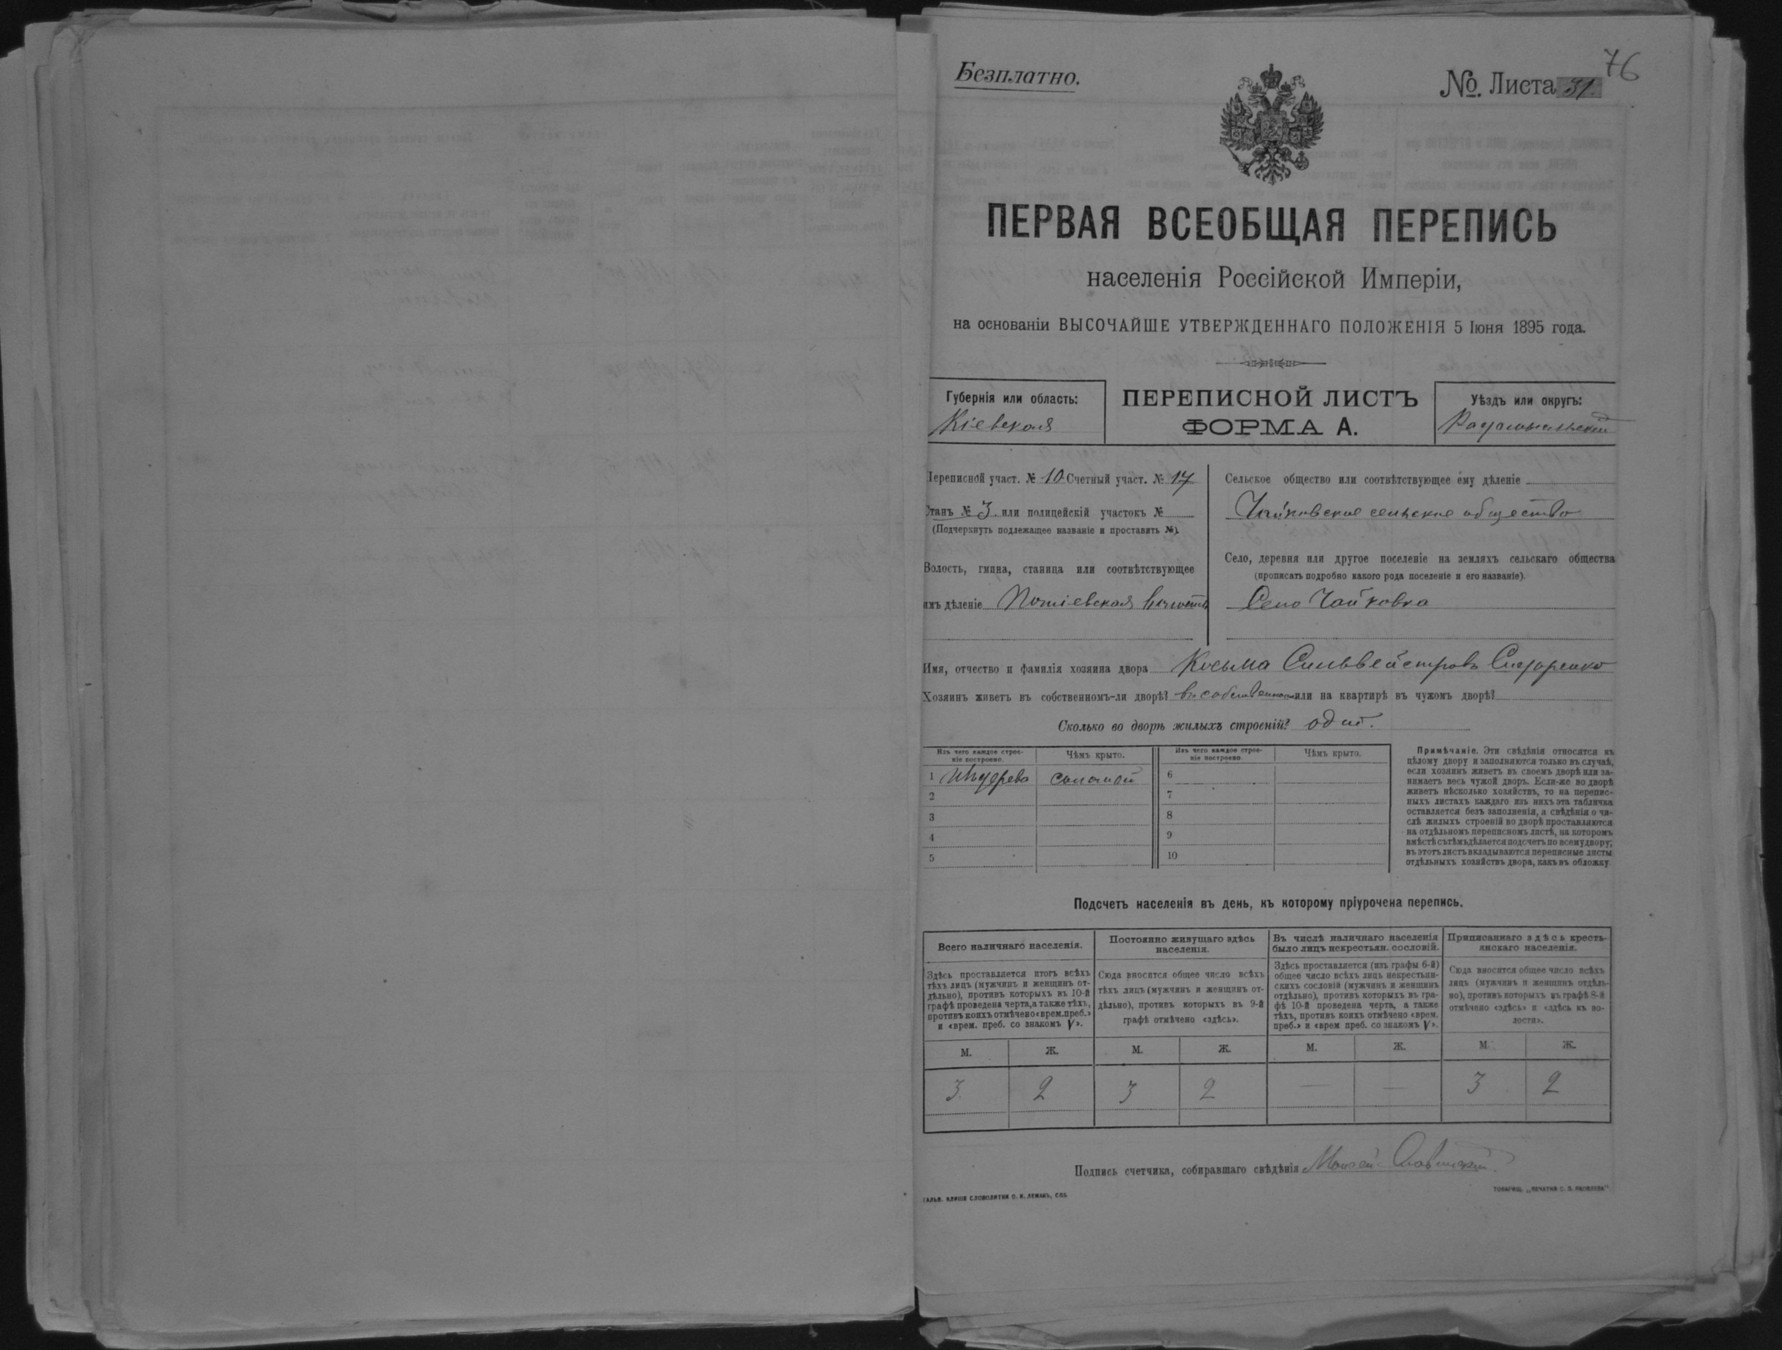 76
Безплатно.
№. Листа 31.
ПЕРВАЯ ВСЕОБЩАЯ ПЕРЕПИСЬ
населенія Россійской Имперіи,
на основаніи ВЫСОЧАЙШЕ УТВЕРЖДЕННАГО ПОЛОЖЕНІЯ 5 Іюня 1895 года.
Губернія или область:
Кіевская
ПЕРЕПИСНОЙ ЛИСТЪ
ФОРМА А.
Уѣздъ или округъ:
Радомысльскій
Переписной участ. № 10 Счетный участ. № 17
Станъ № 3 или полицейскій участокъ №
(Подчеркнуть подлежащее названіе и проставить №).
Волость, гмина, станица или соотвѣтствующее
имъ дѣленіе Потіевская волость
Сельское общество или соотвѣтствующее ему дѣленіе
Чайковское сельское общество
Село, деревня или другое поселеніе на земляхъ сельскаго общества
(прописать подробно какого рода поселеніе и его названіе).
Село Чайковка
Имя, отчество и фамилія хозяина двора Косьма Сильвейстровъ Сидоренко
Хозяинъ живетъ въ собственномъ-ли дворѣ? въ собственномъ или на квартирѣ въ чужомъ дворѣ?
Сколько во дворѣ жилыхъ строеній? одно.
Изъ чего каждое строе-
ніе построено.
Чѣмъ крыто.
Изъ чего каждое строе-
ніе построено.
Чѣмъ крыто.
1 Изъ дерева соломой 6
2 7
3 8
4 9
5 10
Примѣчаніе. Эти свѣдѣнія относятся къ
цѣлому двору и заполняются только въ случаѣ,
если хозяинъ живетъ въ своемъ дворѣ или за-
нимаетъ весь чужой дворъ. Если-же во дворѣ
живетъ нѣсколько хозяйствъ, то на перепис-
ныхъ листахъ каждаго изъ нихъ эта табличка
оставляется безъ заполненія, а свѣдѣнія о чи-
слѣ жилыхъ строеній во дворѣ проставляются
на отдѣльномъ переписномъ листѣ, на которомъ
вмѣстѣ съ тѣмъ дѣлается подсчетъ по всему двору;
въ этотъ листъ вкладываются переписные листы
отдѣльныхъ хозяйствъ двора, какъ въ обложку
Подсчетъ населенія въ день, къ которому пріурочена перепись.
Всего наличнаго населенія.
Здѣсь проставляется итогъ всѣхъ
тѣхъ лицъ (мужчинъ и женщинъ от-
дѣльно), противъ которыхъ въ 10-й
графѣ проведена черта, а также тѣхъ,
противъ коихъ отмѣчено «врем. преб.»
и «врем. преб. со знакомъ V».
Постоянно живущаго здѣсь
населенія.
Сюда вносится общее число всѣхъ
тѣхъ лицъ (мужчинъ и женщинъ от-
дѣльно), противъ которыхъ въ 9-й
графѣ отмѣчено «здѣсь».
Въ числѣ наличнаго населенія
было лицъ некрестьян. сословій.
Здѣсь проставляется (изъ графы 6-й)
общее число всѣхъ лицъ некрестьян-
скихъ сословій (мужчинъ и женщинъ
отдѣльно), противъ которыхъ въ гра-
фѣ 10-й проведена черта, а также
тѣхъ, противъ коихъ отмѣчено «врем.
преб.» и «врем преб. со знакомъ V».
Приписаннаго здѣсь кресть-
янскаго населенія.
Сюда вносится общее число всѣхъ
лицъ (мужчинъ и женщинъ отдѣль-
но), противъ которыхъ въ графѣ 8-й
отмѣчено «здѣсь» и «здѣсь въ во-
лости».
М. Ж. М. Ж. М. Ж. М. Ж.
3 2 3 2 — — 3 2
Подпись счетчика, собиравшаго свѣдѣнія
ГАЛЬВ. КЛИШЕ СЛОВОЛИТНИ О. И. ЛЕМАНЪ, СПБ.
ТОВАРИЩ. „ПЕЧАТНЯ С. П. ЯКОВЛЕВА"